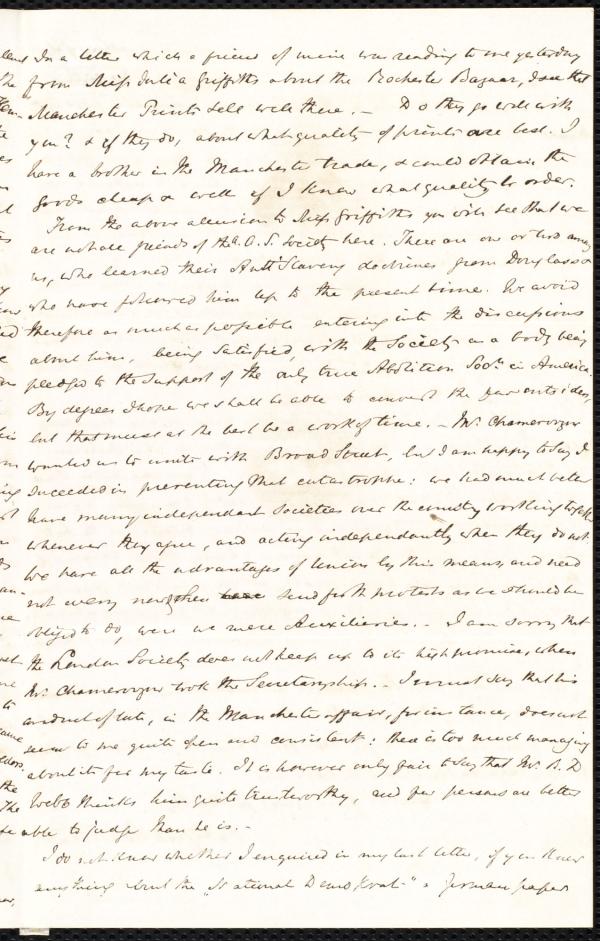 In a letter which a friend of mine was reading to me yesterday
from Miss Julia Griffiths about the Rochester Bazaar, I see that
Manchester Prints sell well there. — Do they go well with
you? & if they do, about what quality of prints are best. I
have a brother in the Manchester trade, & could obtain the
goods cheap & well if I knew what quality to order.
From the above allusion to Miss Griffiths you will see that we
are not all friends of the A. A. S. Society here. There are one or two among
us, who learned their Anti Slavery doctrines from Douglass &
who have followed him up to the present time. We avoid
therefore as much as possible entering into the discussions
about him, being satisfied, with the Society as a body being
pledged to the support of the only true Abolition Socy. in America.
By degrees I hope we shall be able to convert the
but that must at the best be a work of time. — Mr. Chamerovzow
wanted us to unite with Broad Street, but I am happy to say I
succeeded in preventing that catastrophe: we had much better
have many independant Societies over the country working together
whenever they agree, and acting independantly when they do not.
We have all the advantages of Union by this means, and need
not every now & then send forth protests as we should be
obliged to do, were we mere Auxiliaries. — I am sorry that
the London Society does not keep up to its high promise, when
Mr. Chamerovzow took the Secretaryship. — I must say that his
conduct of late, in the Manchester affair, for instance, does not
seem to me quite open and consistent: there is too much managing
about it for my taste. It is however only fair to say that Mr. R. D
Webb thinks him quite trustworthy, and few persons are better
able to judge than he is. —
I do not know whether I enquired in my last letter, if you knew
anything about the "National Demokrat" a German paper